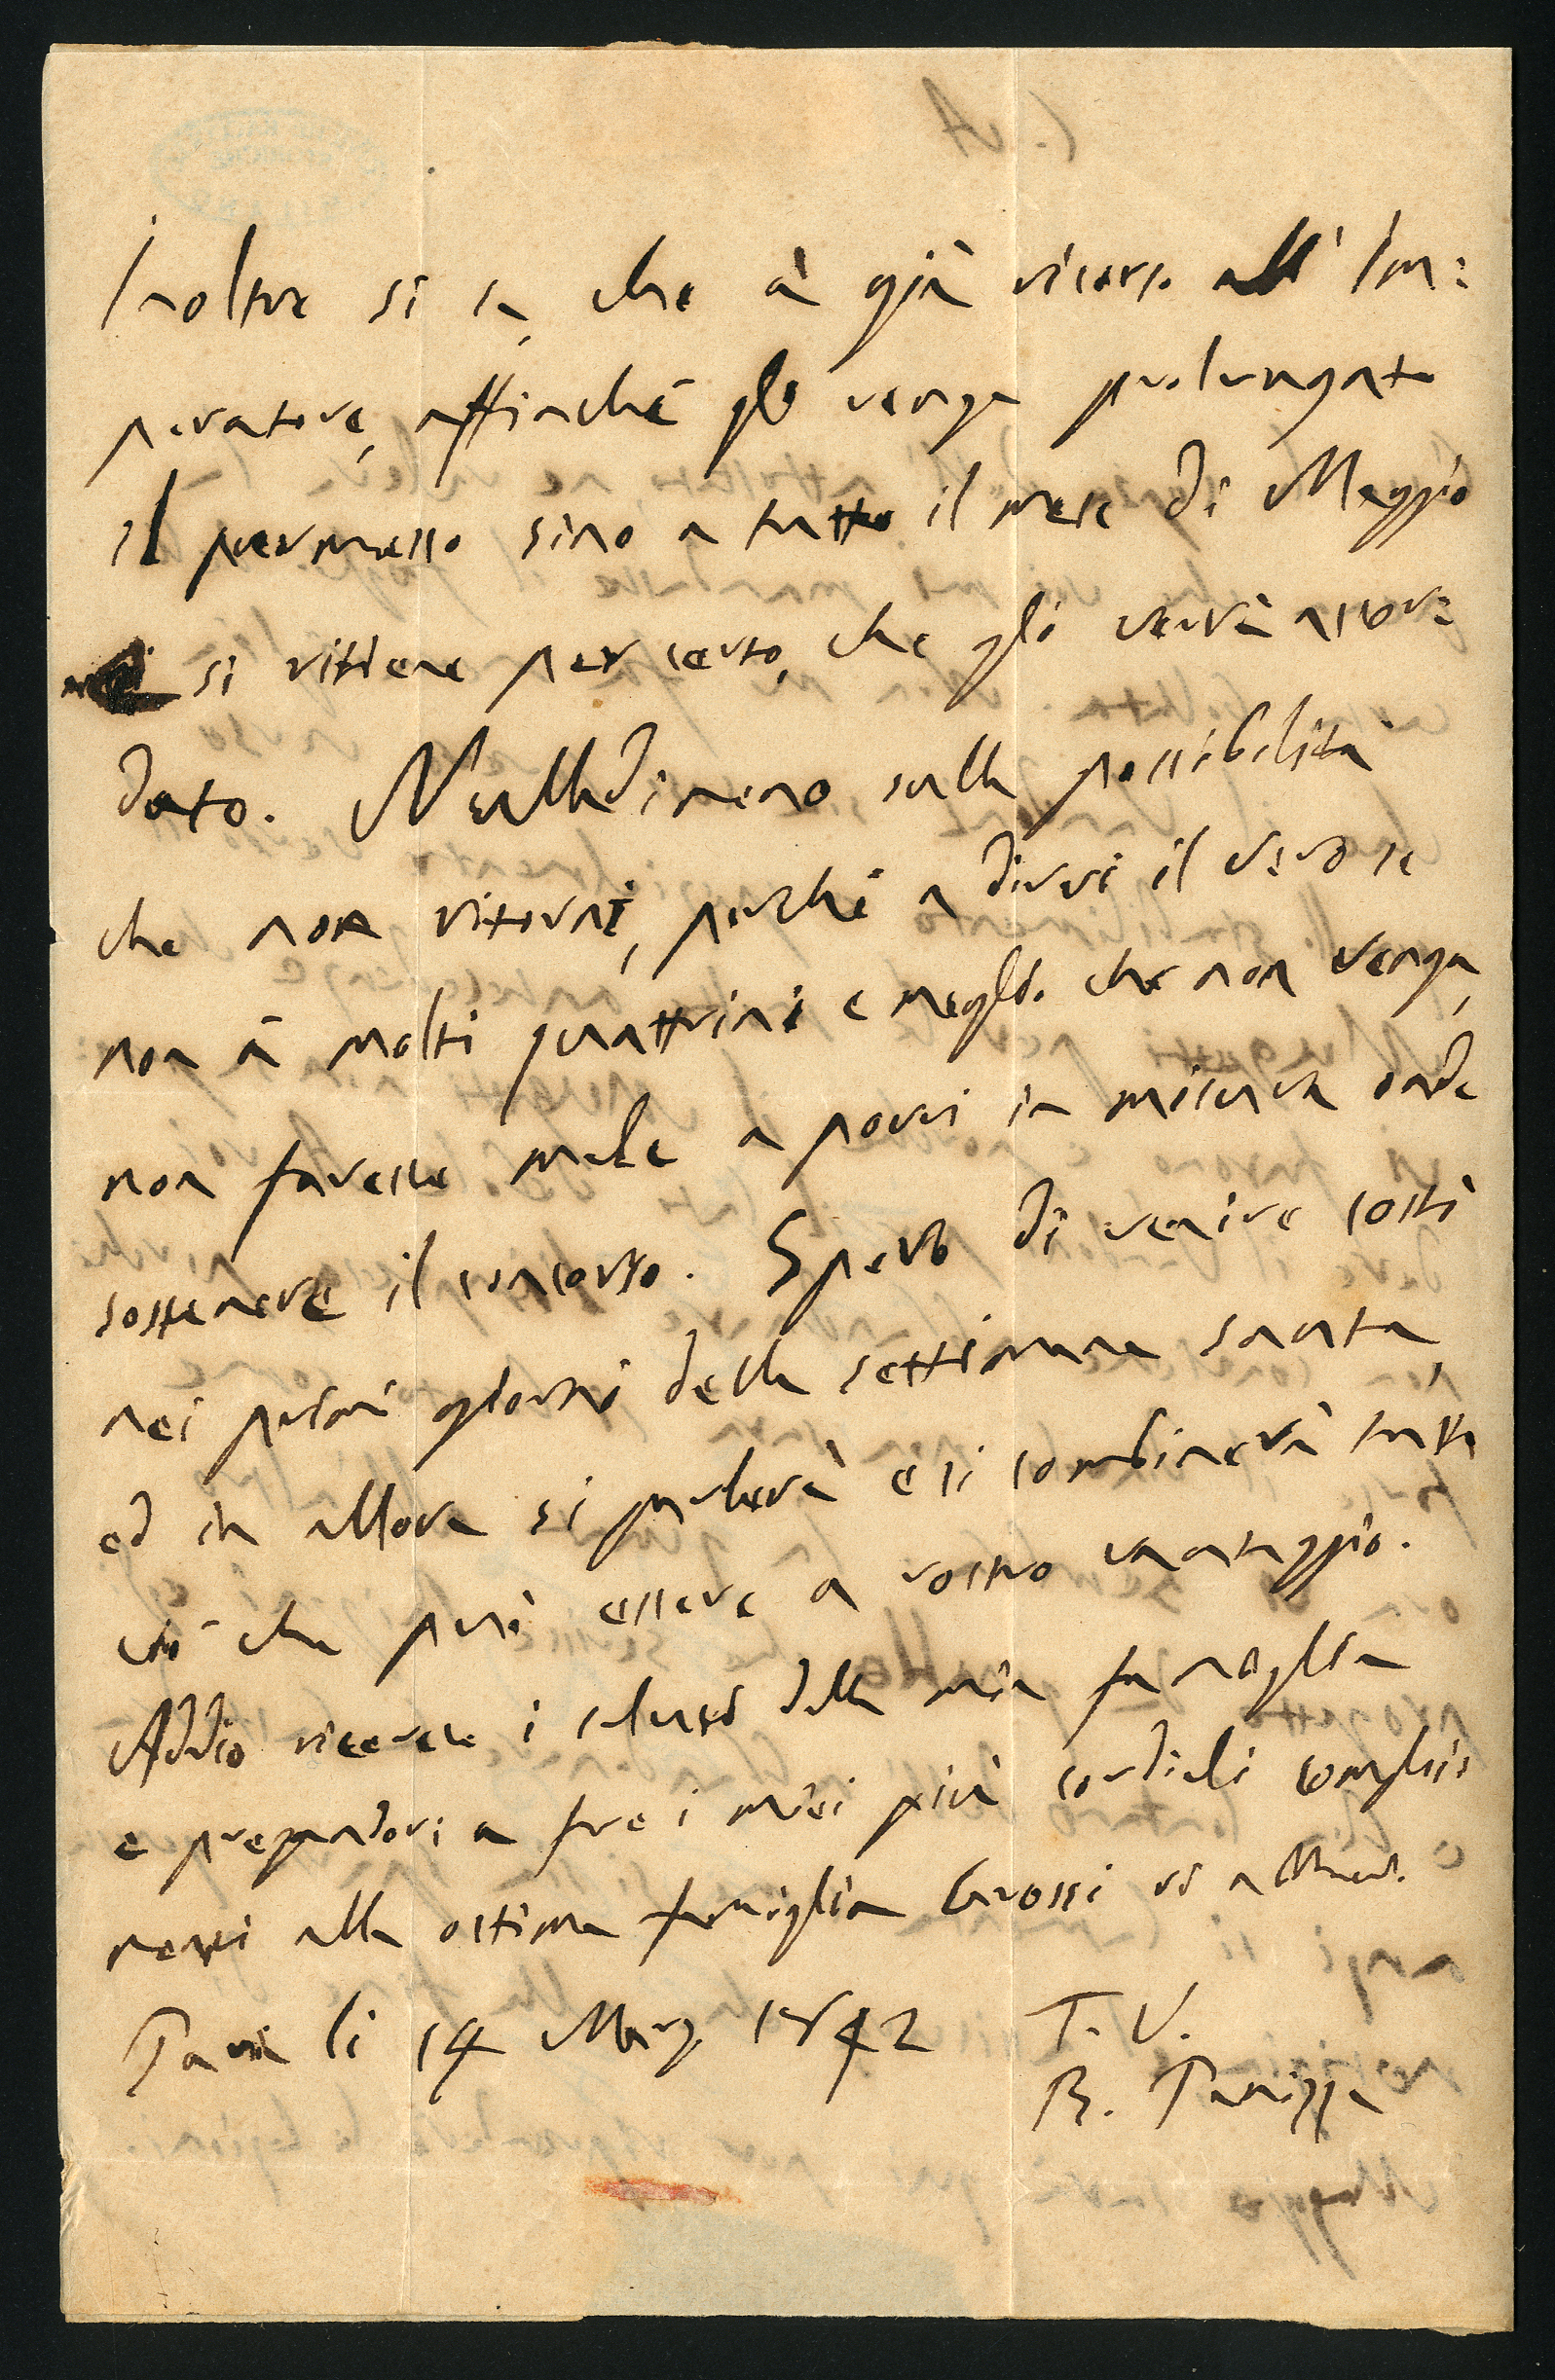 Inoltre si sa, che à già ricorso all' Im:
peratore, affinché gli venga prolungato
il permesso sino a tutto il mese di Maggio
si ritiene per certo, che gli verrà accor:
dato. Nulladimeno sulla possibilità
che non ritorni, perché a dirvi il vero se
non à molti quattrini è meglio che non venga,
non fareste male a porvi in misura onde
sostenere il concorso. Spero di venire costì
nei primi giorni della settimana santa,
ed in allora si parlerà e si combinerà tutto
ciò che può essere a vostro vantaggio.
Addio ricevete i saluti della mia famiglia
e pregandovi a fare i miei più cordiali compli:
menti alla ottima famiglia Grossi vi abbrac.
Pavia li 14 Marzo 1842 T. V.
B. Panizza